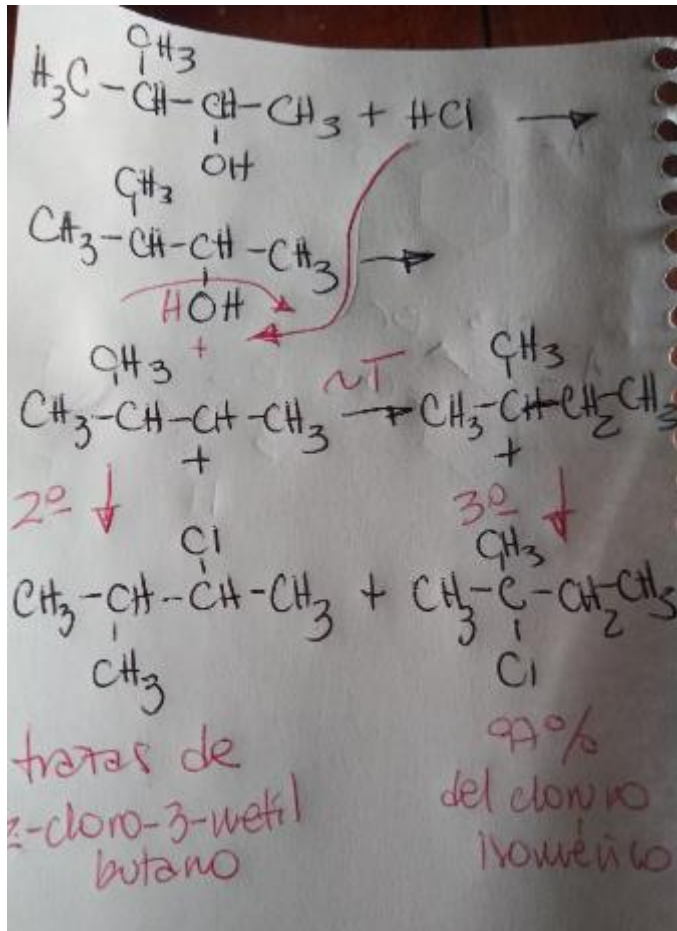 CH3
H3C-CH-CH-CH3 + HCl →
OH
CH3
CH3-CH-CH-CH3 →
HOH
+
CH3 ~T CH3
CH3-CH-CH-CH3 → CH3-CH-CH2-CH3
+ +
2º ↓ 3º ↓
Cl CH3
CH3-CH--CH-CH3 + CH3-C-CH2-CH3
CH3 Cl
trazas de
2-cloro-3-metil
butano
97%
del cloruro
isomérico